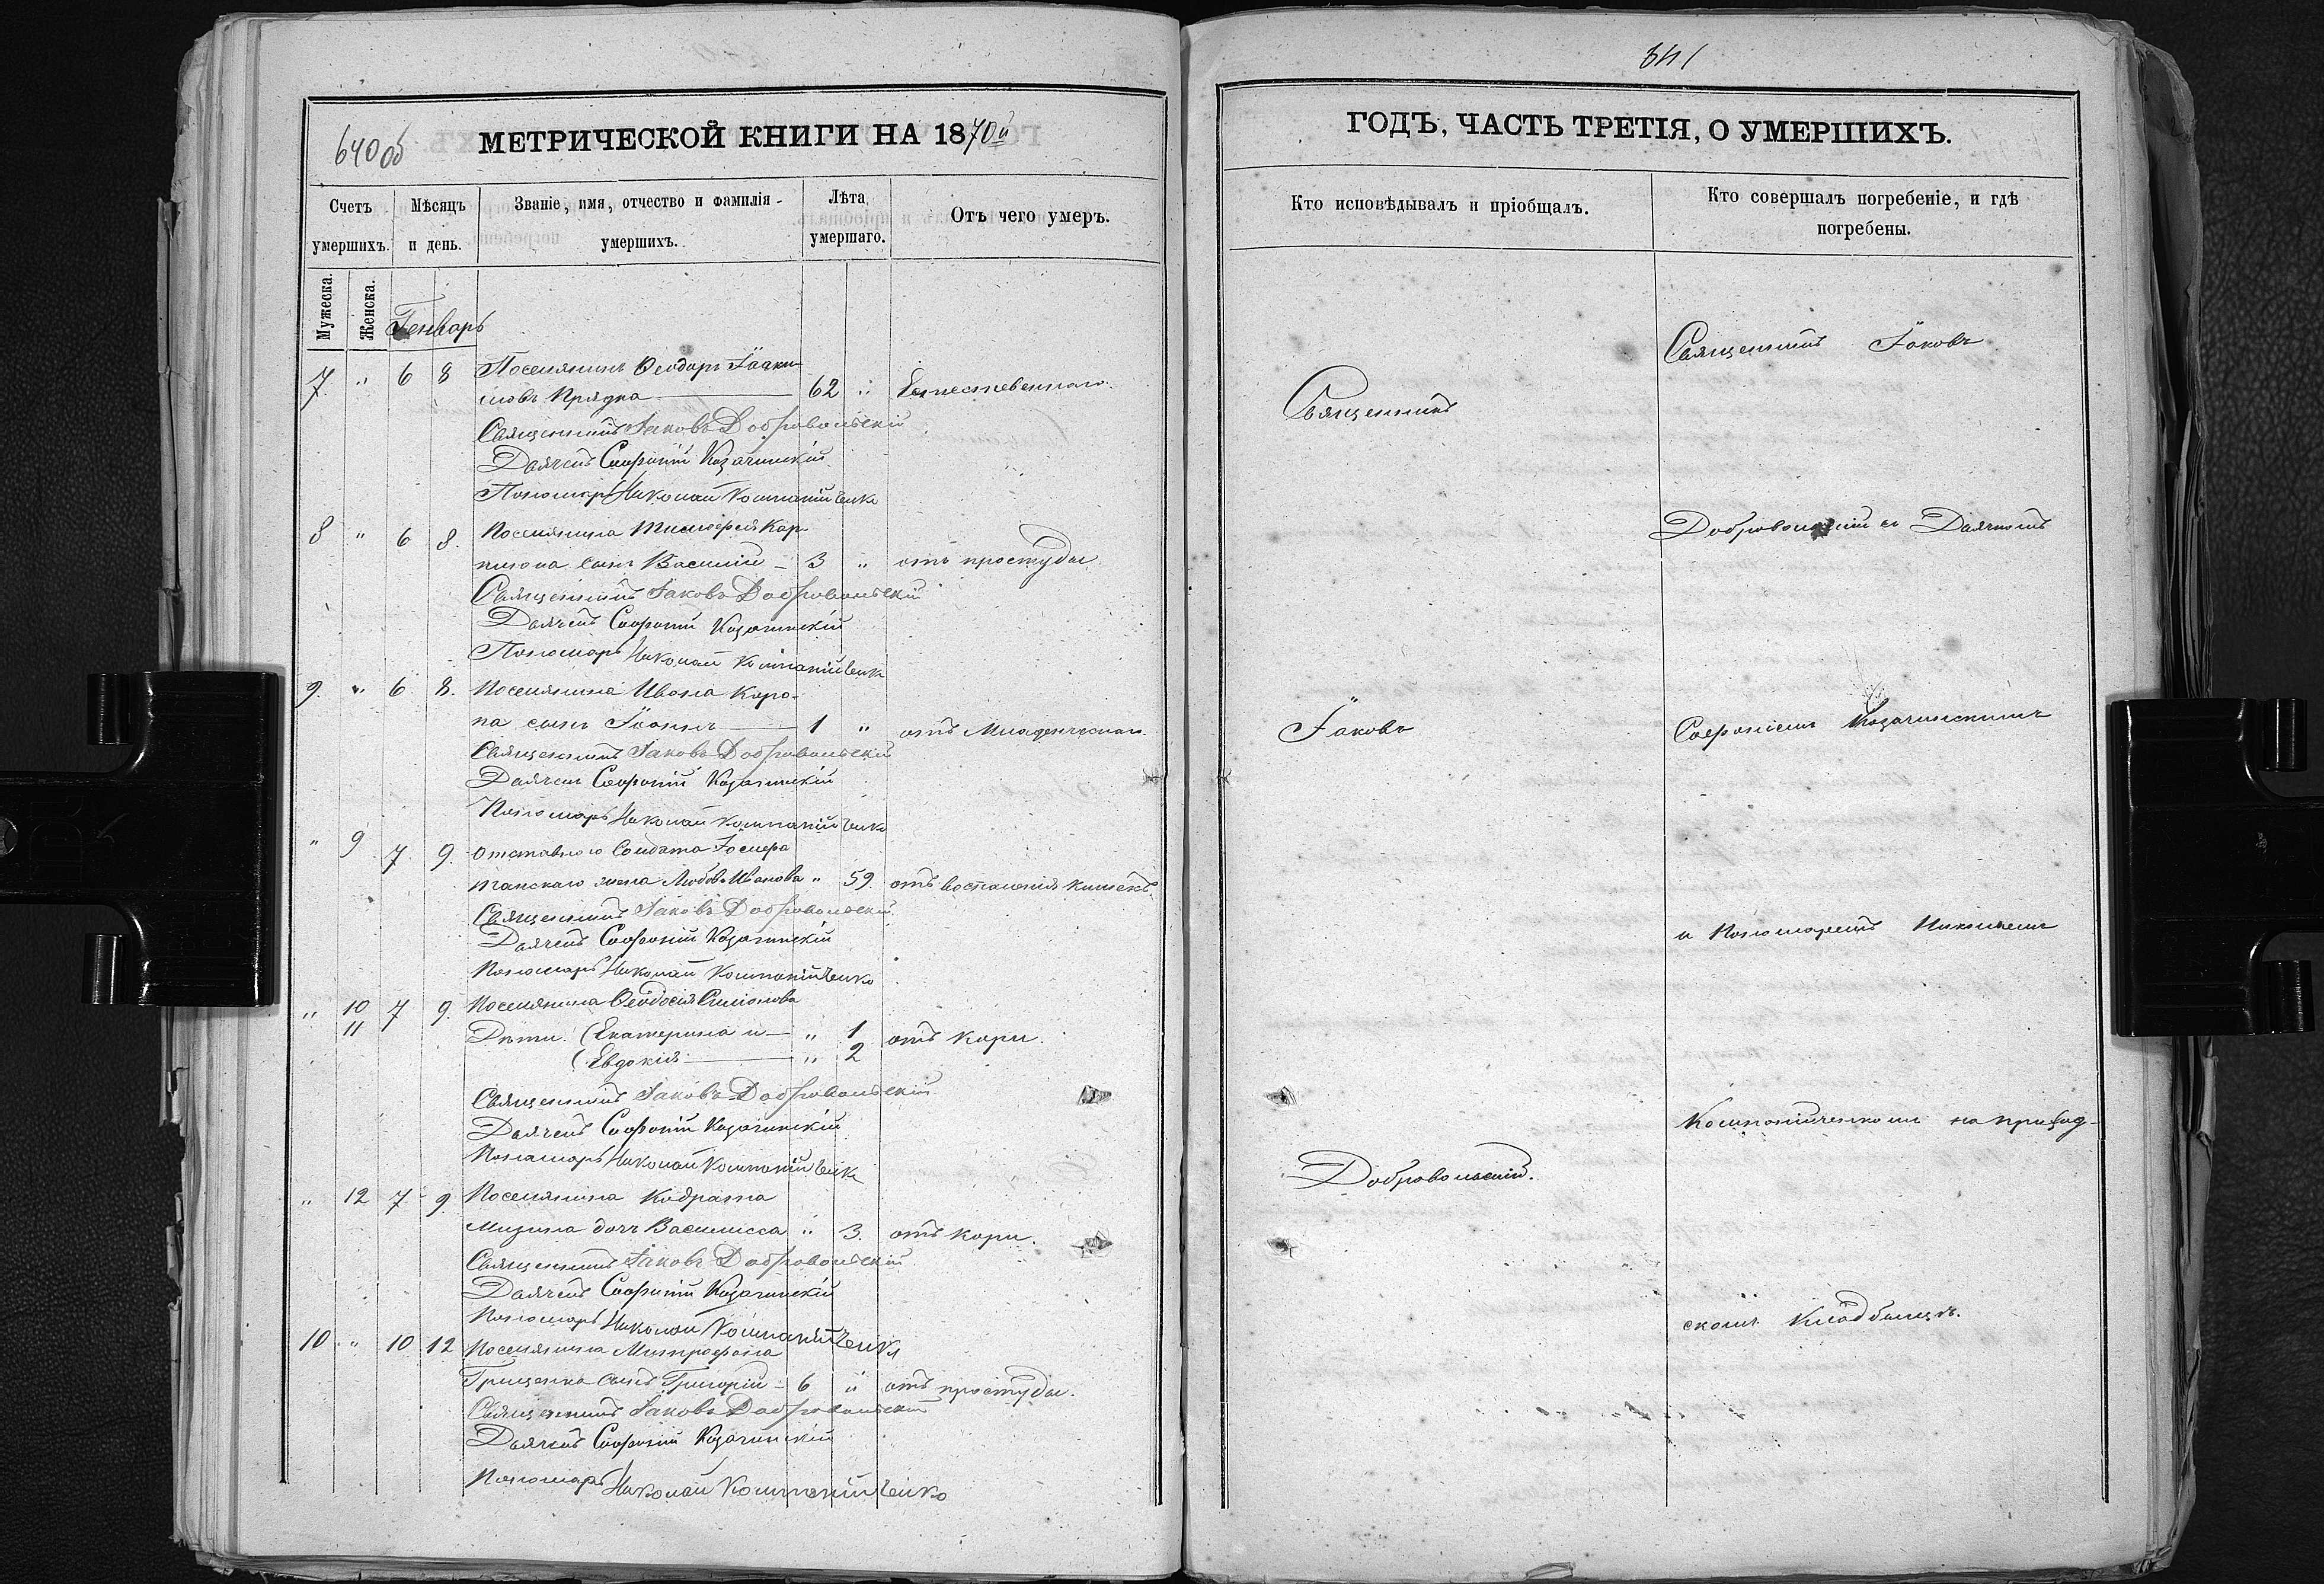 640 об
МЕТРИЧЕСКОЙ КНИГИ НА 1870й
Счетъ умершихъ.
Мѣсяцъ и день.
Званіе, имя, отчество и фамилія умершихъ.
Лѣта умершаго.
Отъ чего умеръ.
Мужеска.
Женска.
Генварь
7 " 6 8 Поселянинъ Ѳеодоръ Іоаки-
мовъ Прядка — 62 " Естественнаго.
Священникъ Іаковъ Добровольскій
Дьячекъ Софроній Козачинскій
Пономарь Николай Компанійченко
8 " 6 8. Поселянина Тимоѳея Кар-
сынъ Василій — 3 " отъ простуды.
Священникъ Іаковъ Добровольскій
Дьячекъ Софроній Козачинскій
Пономарь Николай Компанійченко
9. " 6 8. Поселянина Ивана Коро-
па сынъ Іоаннъ — 1 " отъ Младенческой.
Священникъ Іаковъ Добровольскій
Дьячекъ Софроній Козачинскій
Пономарь Николай Компанійченко
" 9 7 9. Отставного Солдата
жена Любовь Иванова " 59. отъ воспаленія кишекъ.
Священникъ Іаковъ Добровольскій
Дьячекъ Софроній Козачинскій
Пономарь Николай Компанійченко
" 10 7 9. Поселянина Ѳеодосія Симонова
11 Дѣти. (Екатерина и — " 1 отъ кори.
(Евдокія — " 2
Священникъ Іаковъ Добровольскій
Дьячекъ Софроній Козачинскій
Пономарь Николай Компанійченко
" 12 7 9 Поселянина Кодрата
Мизина дочь Василисса " 3. отъ кори.
Священникъ Іаковъ Добровольскій
Дьячекъ Софроній Козачинскій
Пономарь Николай Компанійченко
10 " 10 12 Поселянина Митрофана
Грищенка сынъ Григорій — 6 " отъ простуды.
Священникъ Іаковъ Добровольскій
Дьячекъ Софроній Козачинскій
Пономарь Николай Компанійченко
641
ГОДЪ, ЧАСТЬ ТРЕТІЯ, О УМЕРШИХЪ.
Кто исповѣдывалъ и пріобщалъ.
Кто совершалъ погребеніе, и гдѣ
погребены.
Священникъ
Іаковъ
Добровольскій.
Священникъ Іаковъ
Добровольскій съ Дьячкомъ
Софроніемъ Козачинскимъ
и Пономаремъ Николаемъ
Компанійченкомъ на приход-
скомъ кладбищѣ.